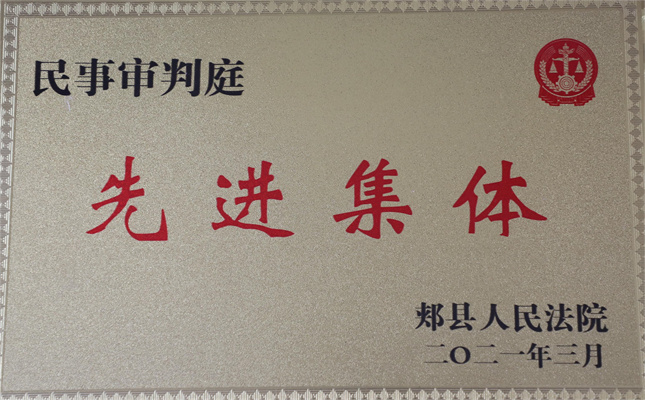 民事审判庭
先进集体
郏县人民法院
二〇二一年三月